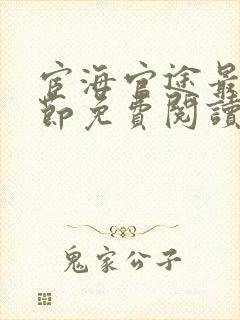 宦海官途最
節免費閱讀
鬼家公子